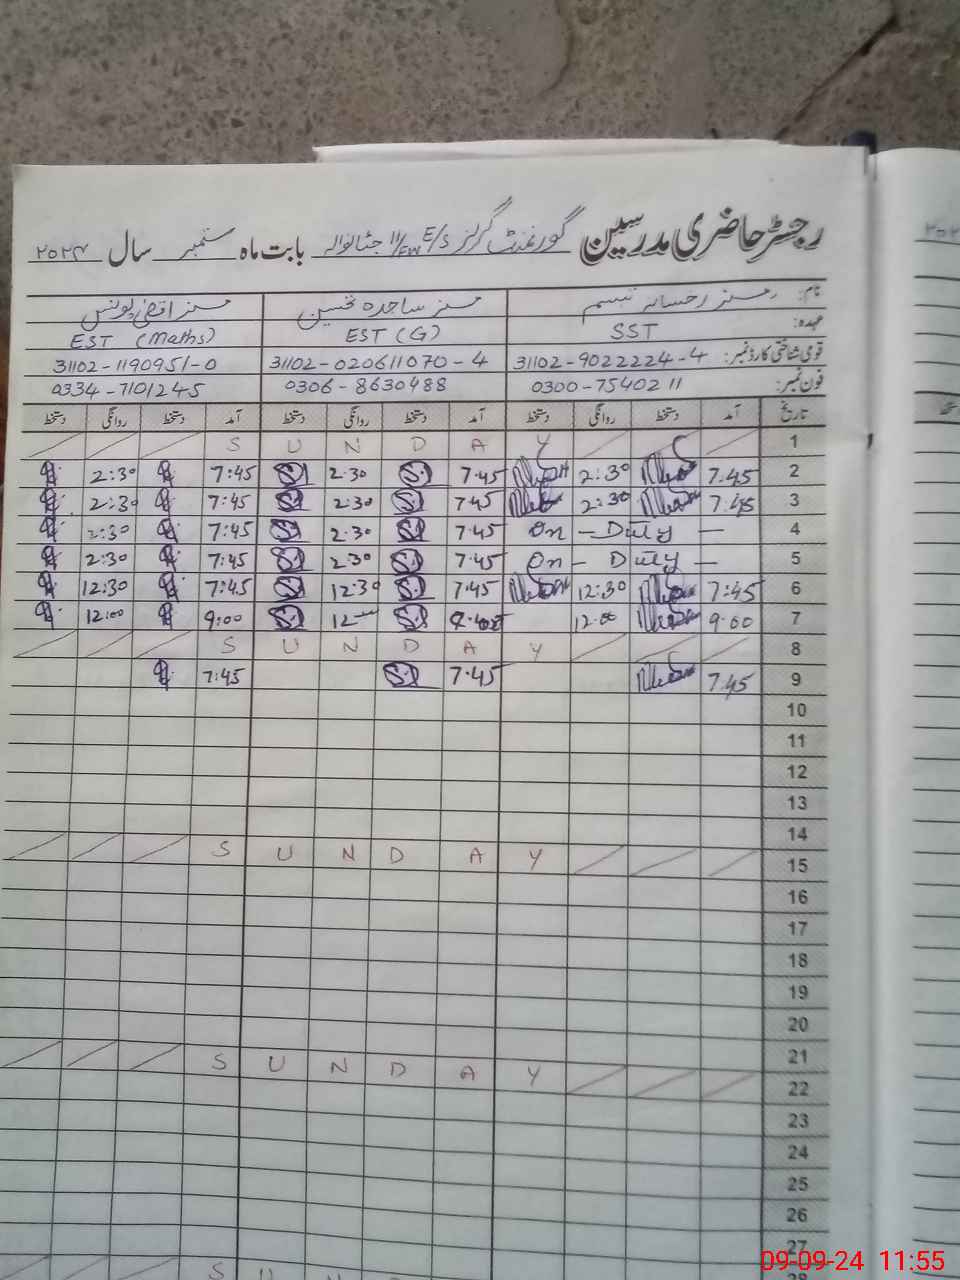 رجسٹر حاضری مدرسین گورنمنٹ گرلز E/S 11/EW جتانوالہ بابت ماہ ستمبر سال ۲۰۲۴
نام: مسز رخسانہ تبسم مسز ساجدہ تحسین مسز اقصٰی یونس
عہدہ: SST EST (G) EST (Maths)
قومی شناختی کارڈ نمبر: 31102-9022224-4 31102-020611070-4 31102-1190951-0
فون نمبر: 0300-7540211 0306-8630488 0334-7101245
تاریخ آمد دستخط روانگی دستخط آمد دستخط روانگی دستخط آمد دستخط روانگی دستخط
1 S U N D A Y
2 7.45 2:30 7.45 2.30 7:45 2:30
3 7.45 2:30 7.45 2:30 7:45 2:30
4 On - Duty - 7.45 2.30 7:45 2:30
5 On - Duty - 7.45 2:30 7:45 2:30
6 7:45 12:30 7.45 12:30 7:45 12:30
7 9.00 12.00 12 9:00 12:00
8 S U N D A Y
9 7.45 7.45 7:45
10
11
12
13
14
15 S U N D A Y
16
17
18
19
20
21
22 S U N D A Y
23
24
25
26
27
28
S U N
09-09-24 11:55